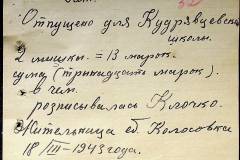 Отпущено для Кудрявцевской
школы.
2 мишки = 13 марок.
(тринадцать марок).
в чем
розписывалась Клочко.
Жительница с. Колосовка
18/III-1943 года.